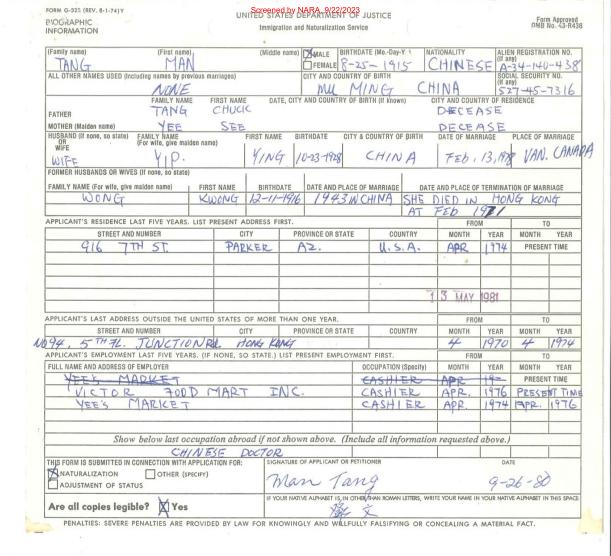 Screened by NARA, 9/22/2023
FORM G-325 (REV. 8-1-74)Y
UNITED STATES DEPARTMENT OF JUSTICE
Form Approved
BIOGRAPHIC
Immigration and Naturalization Service
OMB No. 43-R436
INFORMATION
(Family name) (First name) (Middle name) MALE FEMALE BIRTHDATE (Mo.-Day-Y) NATIONALITY ALIEN REGISTRATION NO. (If any)
TANG MAN 8-25-1915 CHINESE A-34-140-438
ALL OTHER NAMES USED (Including names by previous marriages) CITY AND COUNTRY OF BIRTH SOCIAL SECURITY NO. (If any)
NONE MING CHINA 527-45-7316
FAMILY NAME FIRST NAME DATE, CITY AND COUNTRY OF BIRTH (If known) CITY AND COUNTRY OF RESIDENCE
FATHER TANG CHUCK DECEASE
MOTHER (Maiden name) YEE SEE DECEASE
HUSBAND (If none, so state) OR WIFE FAMILY NAME (For wife, give maiden name) FIRST NAME BIRTHDATE CITY & COUNTRY OF BIRTH DATE OF MARRIAGE PLACE OF MARRIAGE
WIFE YIP. YING 10-23-1928 CHINA FEB, 13, VAN. CANADA
FORMER HUSBANDS OR WIVES (If none, so state)
FAMILY NAME (For wife, give maiden name) FIRST NAME BIRTHDATE DATE AND PLACE OF MARRIAGE DATE AND PLACE OF TERMINATION OF MARRIAGE
WONG KWONG 12-11-1916 1943 IN CHINA SHE DIED IN HONG KONG
AT FEB 1971
APPLICANT'S RESIDENCE LAST FIVE YEARS. LIST PRESENT ADDRESS FIRST. FROM TO
STREET AND NUMBER CITY PROVINCE OR STATE COUNTRY MONTH YEAR MONTH YEAR
916 7TH ST. PARKER AZ. U.S.A. APR 1974 PRESENT TIME
13 MAY 1981
APPLICANT'S LAST ADDRESS OUTSIDE THE UNITED STATES OF MORE THAN ONE YEAR. FROM TO
STREET AND NUMBER CITY PROVINCE OR STATE COUNTRY MONTH YEAR MONTH YEAR
NO 94, 5TH FL. JUNCTION Rd. HONG KONG 4 1970 4 1974
APPLICANT'S EMPLOYMENT LAST FIVE YEARS. (IF NONE, SO STATE.) LIST PRESENT EMPLOYMENT FIRST. FROM TO
FULL NAME AND ADDRESS OF EMPLOYER OCCUPATION (Specify) MONTH YEAR MONTH YEAR
YEE'S MARKET CASHIER APR PRESENT TIME
VICTOR FOOD MART INC. CASHIER APR. 1976 PRESENT TIME
YEE'S MARKET CASHIER APR. 1974 APR. 1976
Show below last occupation abroad if not shown above. (Include all information requested above.)
CHINESE DOCTOR
THIS FORM IS SUBMITTED IN CONNECTION WITH APPLICATION FOR: SIGNATURE OF APPLICANT OR PETITIONER DATE
NATURALIZATION OTHER (SPECIFY)
ADJUSTMENT OF STATUS
Man Tang 9-26-80
IF YOUR NATIVE ALPHABET IS IN OTHER THAN ROMAN LETTERS, WRITE YOUR NAME IN YOUR NATIVE ALPHABET IN THIS SPACE
Are all copies legible? X Yes
文
PENALTIES: SEVERE PENALTIES ARE PROVIDED BY LAW FOR KNOWINGLY AND WILLFULLY FALSIFYING OR CONCEALING A MATERIAL FACT.